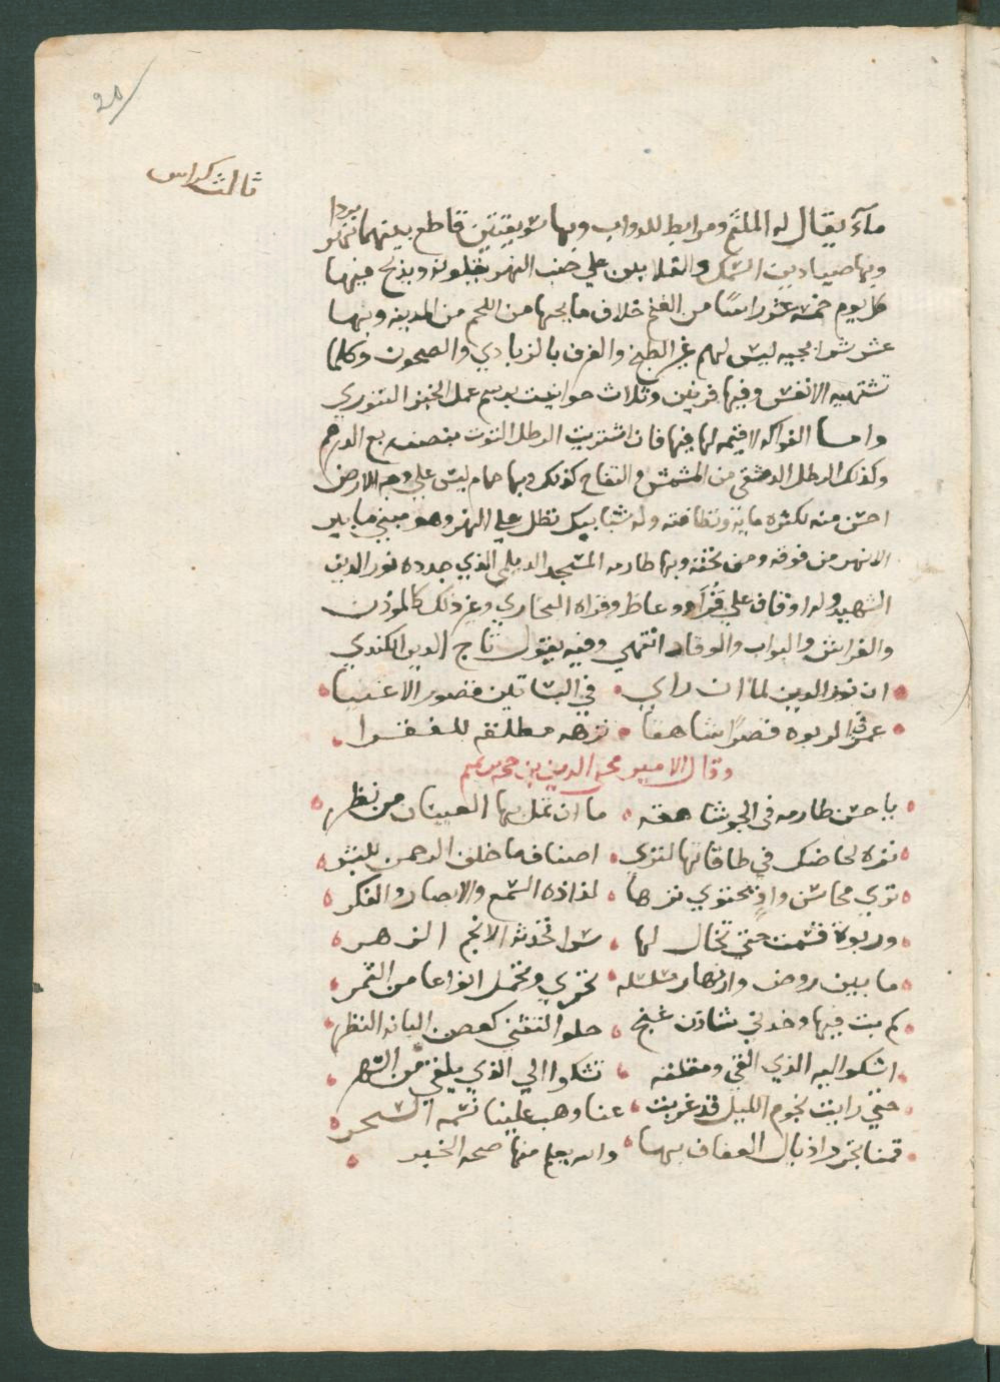 20
ثالث كراس
مآء يقال له الملثم ومرابط للدواب وبها سويقتين قاطع بينهما نهر بردا
وبها صيادين السمك والقلايين علي جنب النهر يقلونه ويذبح فيها
كل يوم خمسة عشر راسًا من الغنم خلاف ما يجيها من اللحم من المدينه وبها
عشر شرايحيه ليس لهم غير الطبخ والغرف بالزبادي والصحون وكلما
تشتهيه الانفس وفيها فرنين وثلاث حوانيت برسم عمل الخبز التنوري
واما الفواكه لا قيمه لها فيها فان اشتريت الرطل التوت بنصف ربع الدرهم
وكذلك الرطل الدمشقي من المشمش والتفاح كذلك وبها حمام ليس علي وجه الارض
احسن منه لكثره مايه ونظافته وله شبابيك تظل علي النهر وهو مبني ما بين
الانهر من فوقه ومن تحته وبها طارمه المسجد الديلمي الذي جدده نور الدين
الشهيد وله اوقاف علي قُرَّاء ووعاظ وقراه البخاري وغير ذلك كالموذن
والفراش والبواب والوقاد انتهي وفيه يقول تاج الدين الكندي
ان نور الدين لما ان راي • في البساتين قصور الاغنيا
عمر الربوه قصرًا شاهقا • نزهه مطلقه للفقرا
وقال الامير مجير الدين بن تميم
يا حسن طارمه في الجو شاهقه • ما ان تمل بها العينان من نظر
نزه لحاضك في طاقاتها لتري • اصناف ما خلق الرحمن للبشر
تري محاسن وادٍ يحتوي نزها • لذاذه السمع والابصار والفكر
وربوة قد سمت حتي تخال لها • سرا تحدثه الانجم الزهر
ما بين روض وانهار مسلسله • تجري وتحمل انواعا من الثمر
كم بت فيها وخدني شادن غنج • حلو التثني كغصن البانه النظر
اشكو اليه الذي القي ومقلته • تشكوا الي الذي يلقي من السهر
حتي رايت نجوم الليل قد غربت • عنا وهب علينا نسمه السحر
قمنا نجرر اذيال العفاف بها • والله يعلم منها صحه الخبر